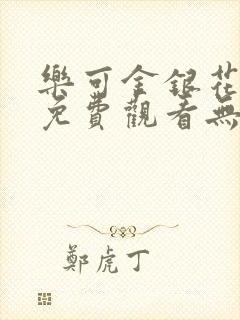 樂可金銀花
免費觀看無
鄭虎丁